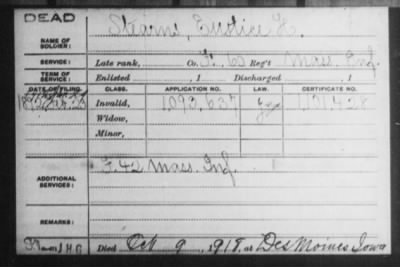 DEAD
NAME OF SOLDIER: Stearns, Eustice H.
SERVICE: Late rank, Co. F. 60 Reg't Mass. Inf.
TERM OF SERVICE: Enlisted , 1 Discharged , 1
DATE OF FILING. CLASS. APPLICATION NO. LAW. CERTIFICATE NO.
Invalid, 1,093,637
Widow,
Minor,
ADDITIONAL SERVICES: F. 42 Mass. Inf.
REMARKS:
Died Oct 9, 1918, at Des Moines Iowa